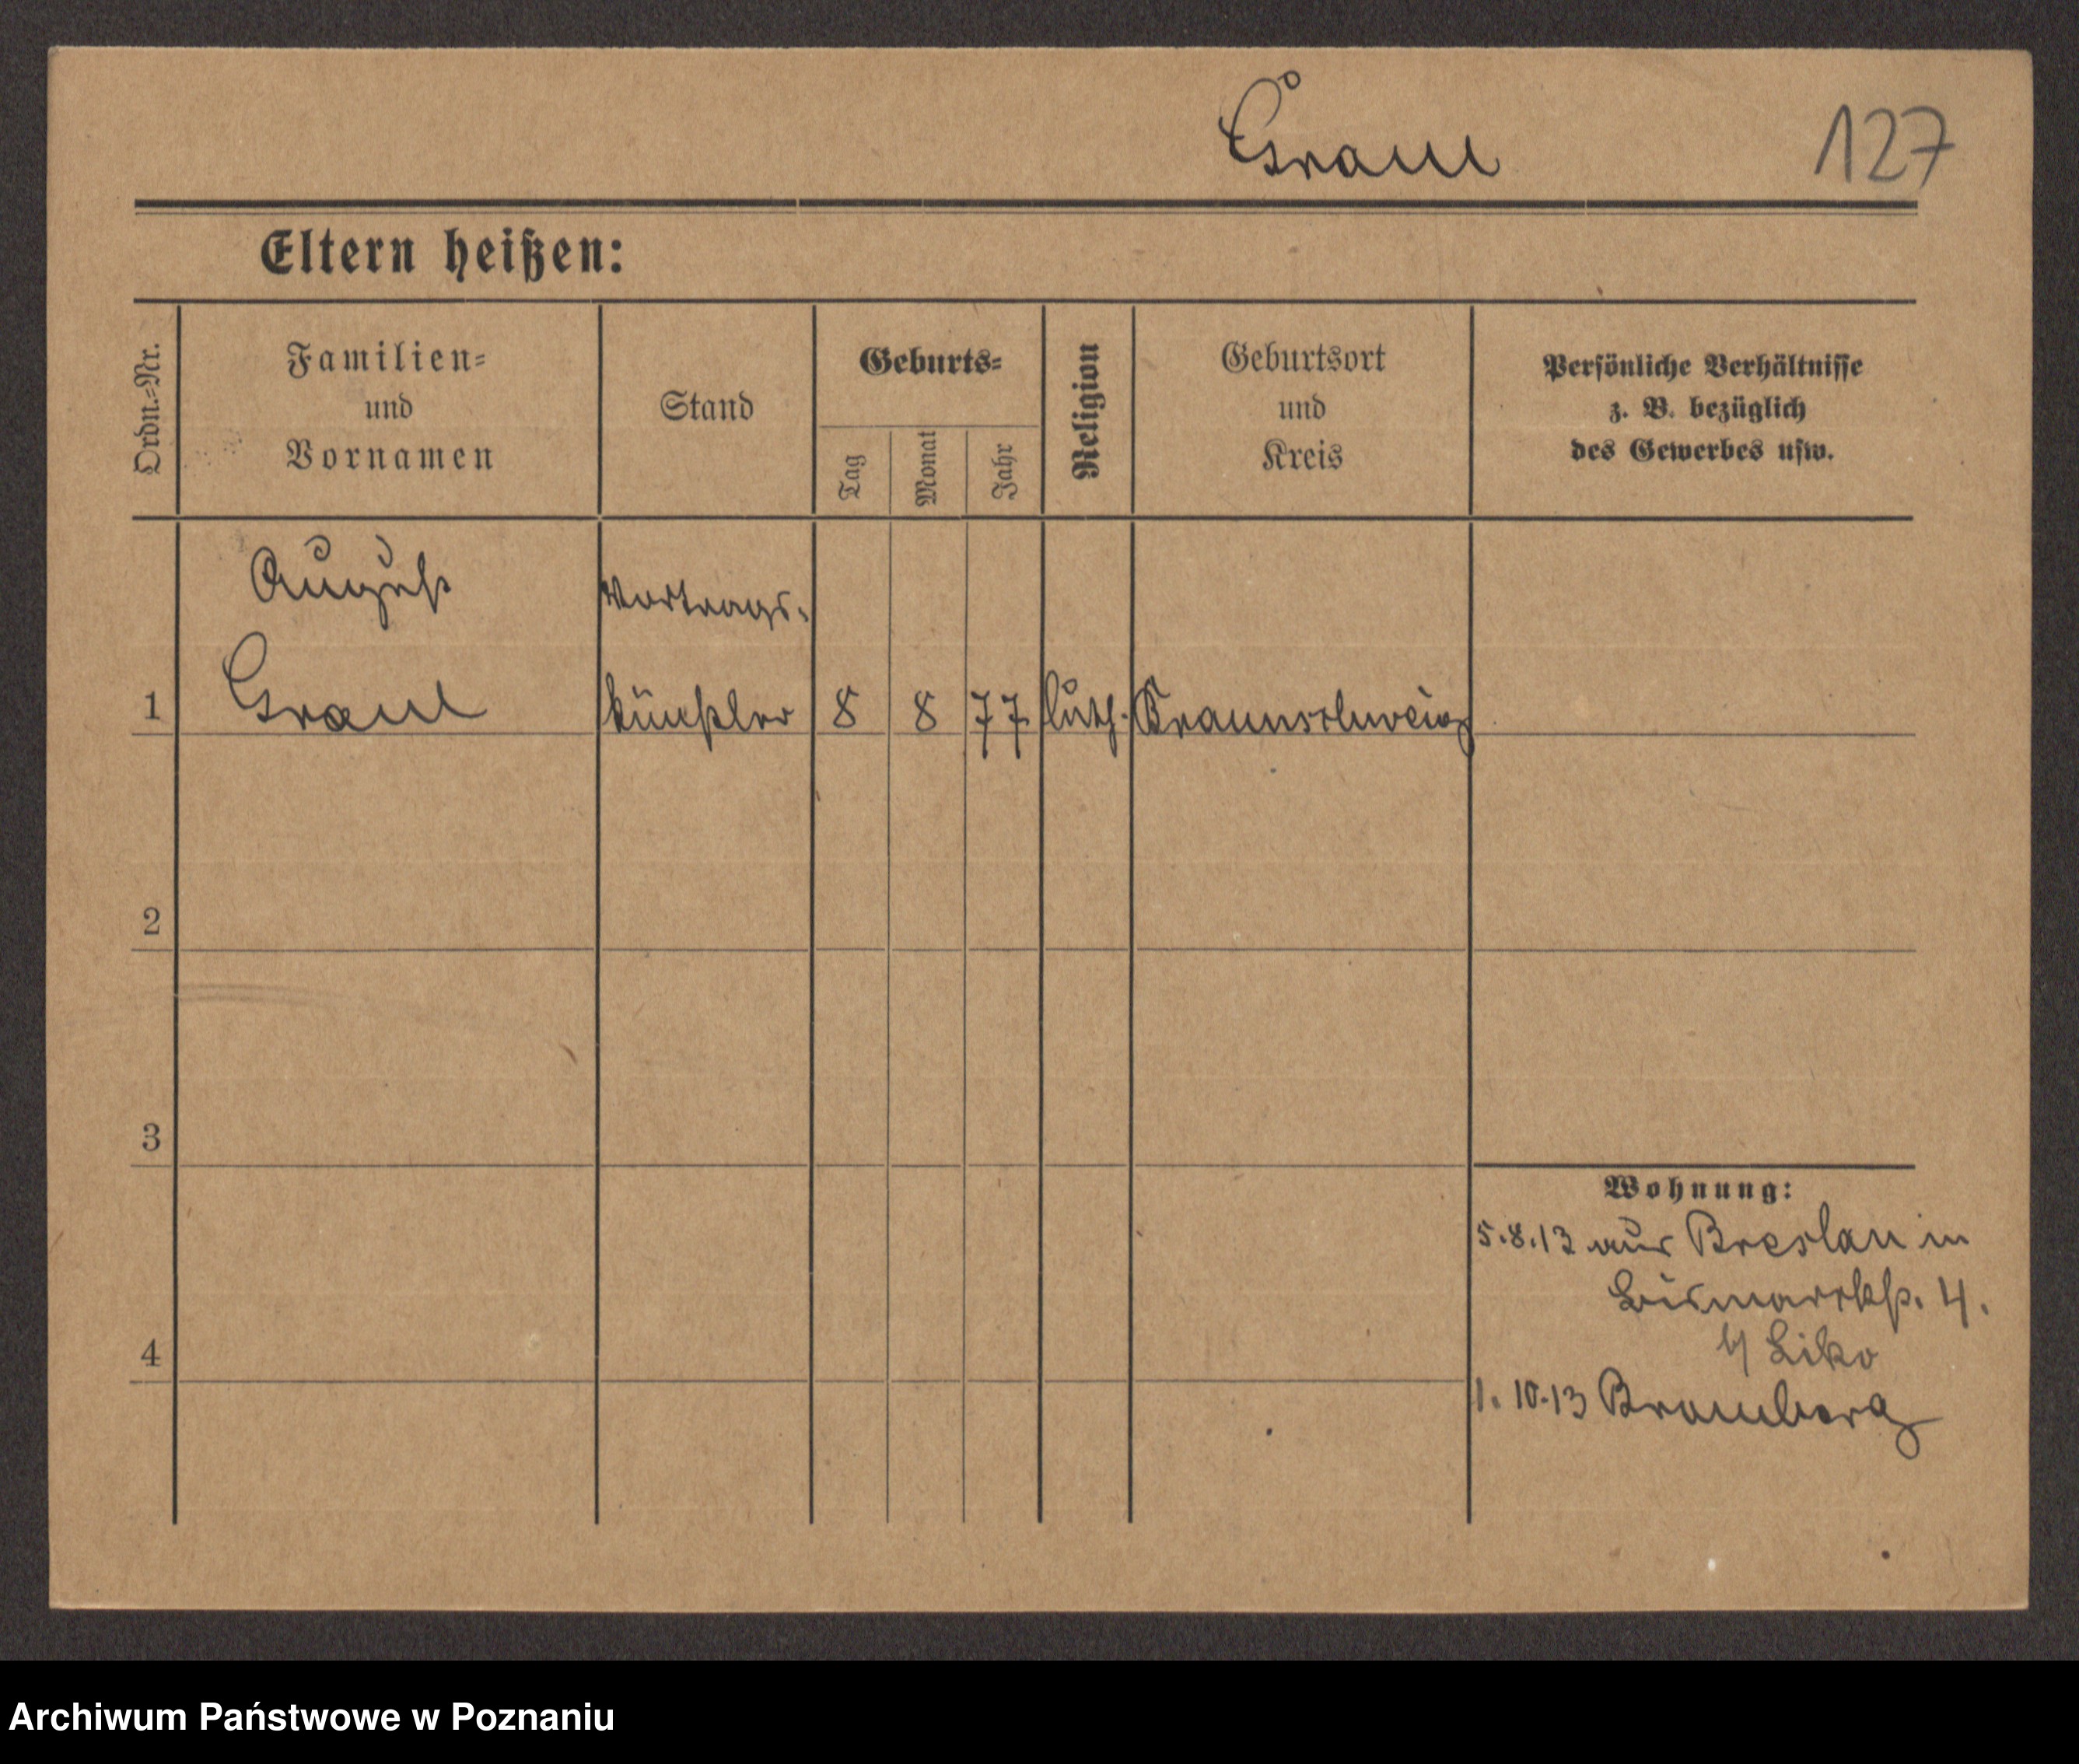 Graul
127
Eltern heißen:
Ordn.-Nr.
Familien-
und
Vornamen
Stand
Geburts-
Tag
Monat
Jahr
Religion
Geburtsort
und
Kreis
Persönliche Verhältnisse
z. B. bezüglich
des Gewerbes usw.
August
Vortrags-
1 Graul künstler 8 8 77 luth. Braunschweig
2
3
Wohnung:
5.8.13 aus Breslau in
Bismarckstr. 4.
4
1.10.13 Bromberg
Archiwum Państwowe w Poznaniu